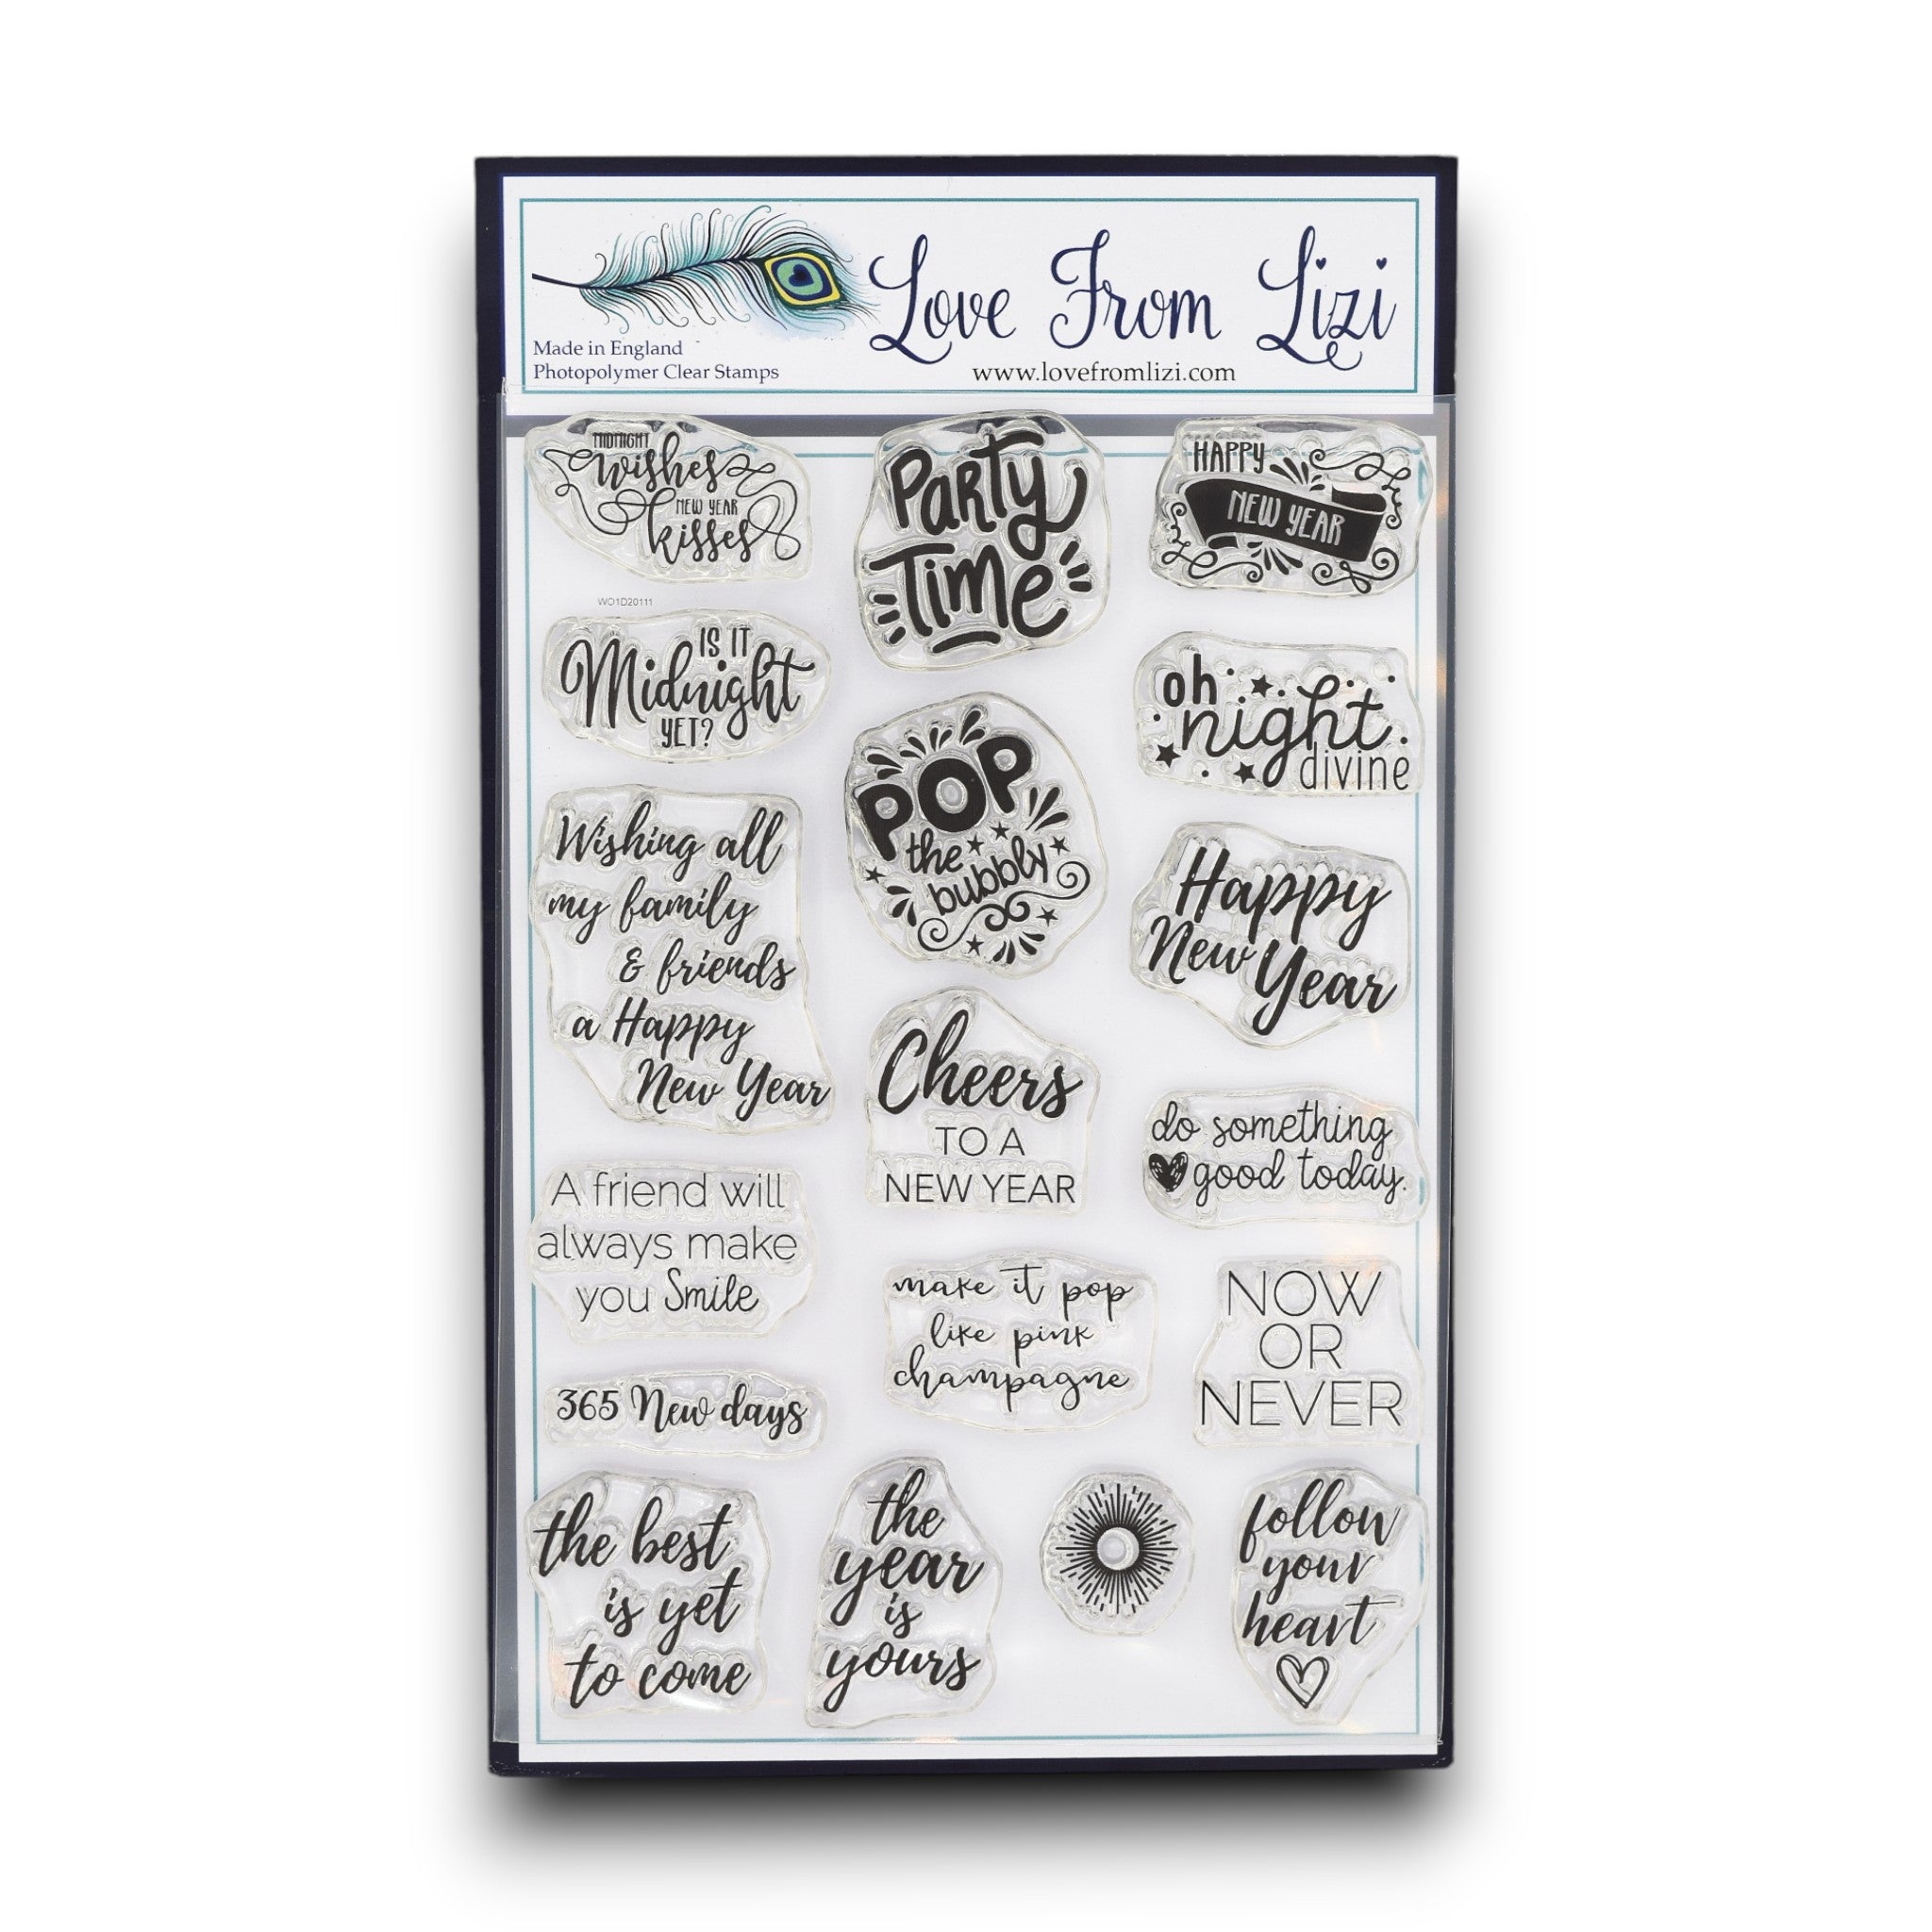 Love From Lizi
Made in England
Photopolymer Clear Stamps
www.lovefromlizi.com
MIDNIGHT
wishes
NEW YEAR
kisses
WO1D20111
PARTY
TIME
HAPPY
NEW YEAR
IS IT
Midnight
YET?
oh
night
divine
POP
the
bubbly
Wishing all
my family
& friends
a Happy
New Year
Happy
New Year
Cheers
TO A
NEW YEAR
do something
good today.
A friend will
always make
you Smile
make it pop
like pink
champagne
NOW
OR
NEVER
365 New days
the best
is yet
to come
the
year
is
yours
follow
your
heart